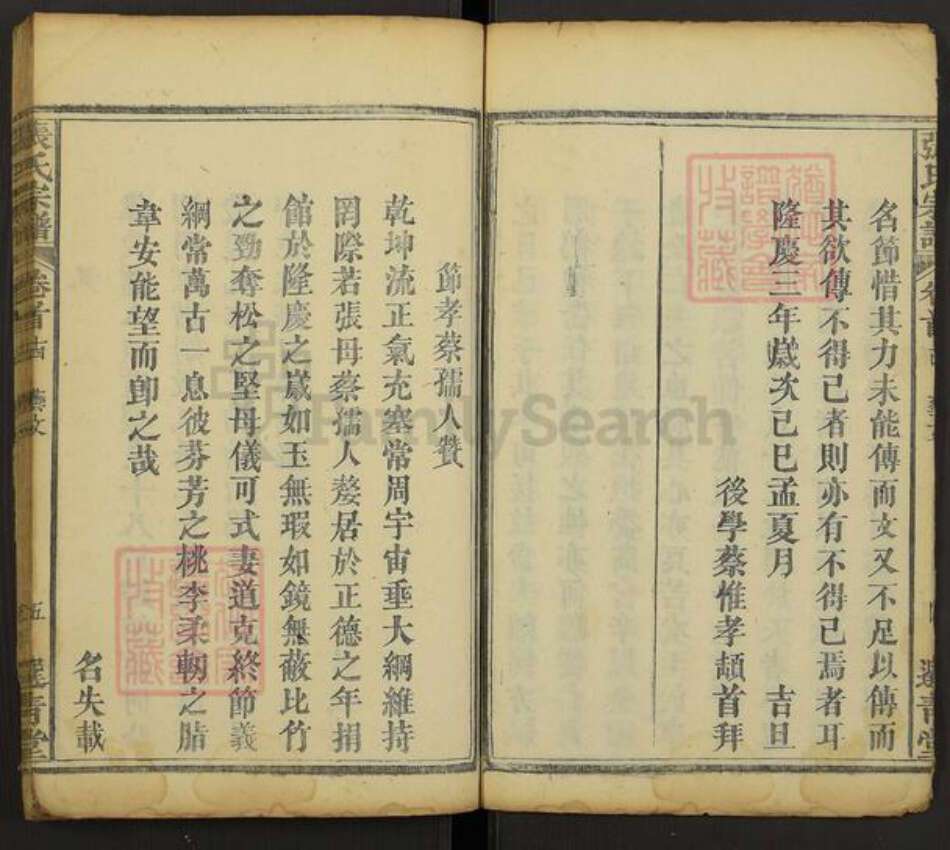 名節惜其力未能傳而文又不足以傳而
其欲傳不得已者則亦有不得已焉者耳
隆慶三年歲次己巳孟夏月 吉旦
後學蔡惟孝頡首拜
節孝蔡孺人贊
乾坤流正氣充塞常周宇宙垂大綱維持
罔際若張母蔡孺人嫠居於正德之年捐
館於隆慶之歲如玉無瑕如鏡無蔽比竹
之勁奪松之堅母儀可式妻道克終節義
綱常萬古一息彼芬芳之桃李柔軔之脂
韋安能望而卽之哉
名失載
張氏宗譜 卷首 藝文 五
FamilySearch